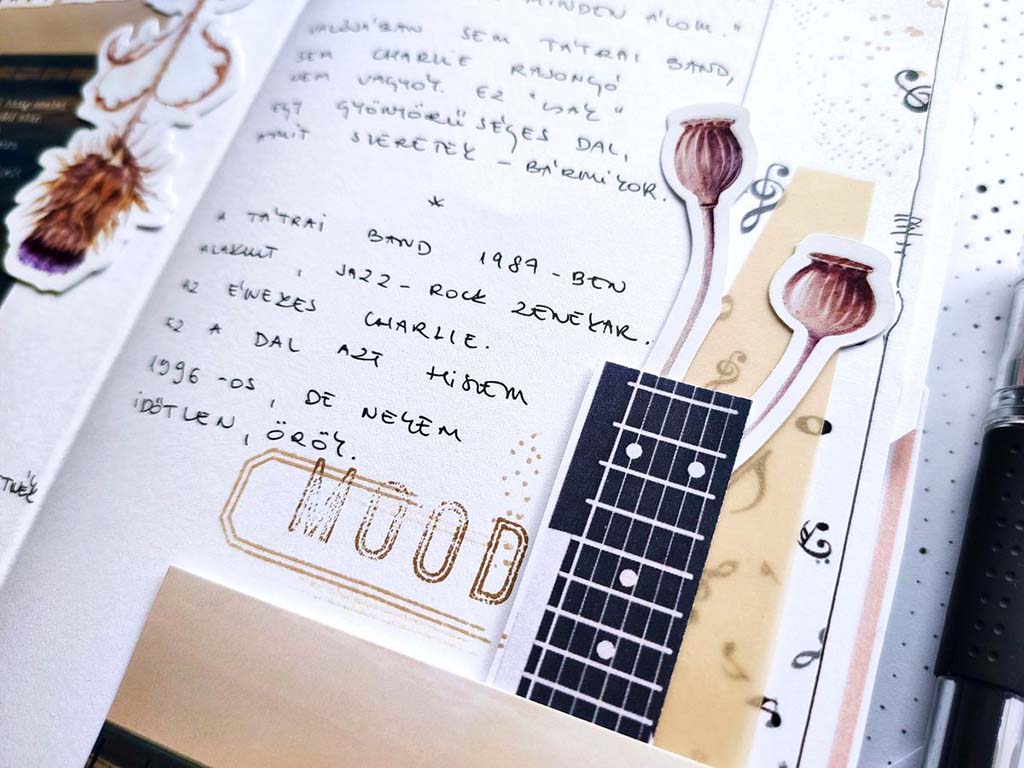 MINDEN ÁLOM."
VALÓJÁBAN SEM TÁTRAI BAND,
SEM CHARLIE RAJONGÓ
NEM VAGYOK. EZ "CSAK"
EGY GYÖNYÖRŰSÉGES DAL,
AMIT SZERETEK - BÁRMIKOR.
*
A TÁTRAI BAND 1987-BEN
ALAKULT, JAZZ-ROCK ZENEKAR.
AZ ÉNEKES CHARLIE.
EZ A DAL AZT HISZEM
1996-OS, DE NEKEM
IDŐTLEN, ÖRÖK.
MOOD